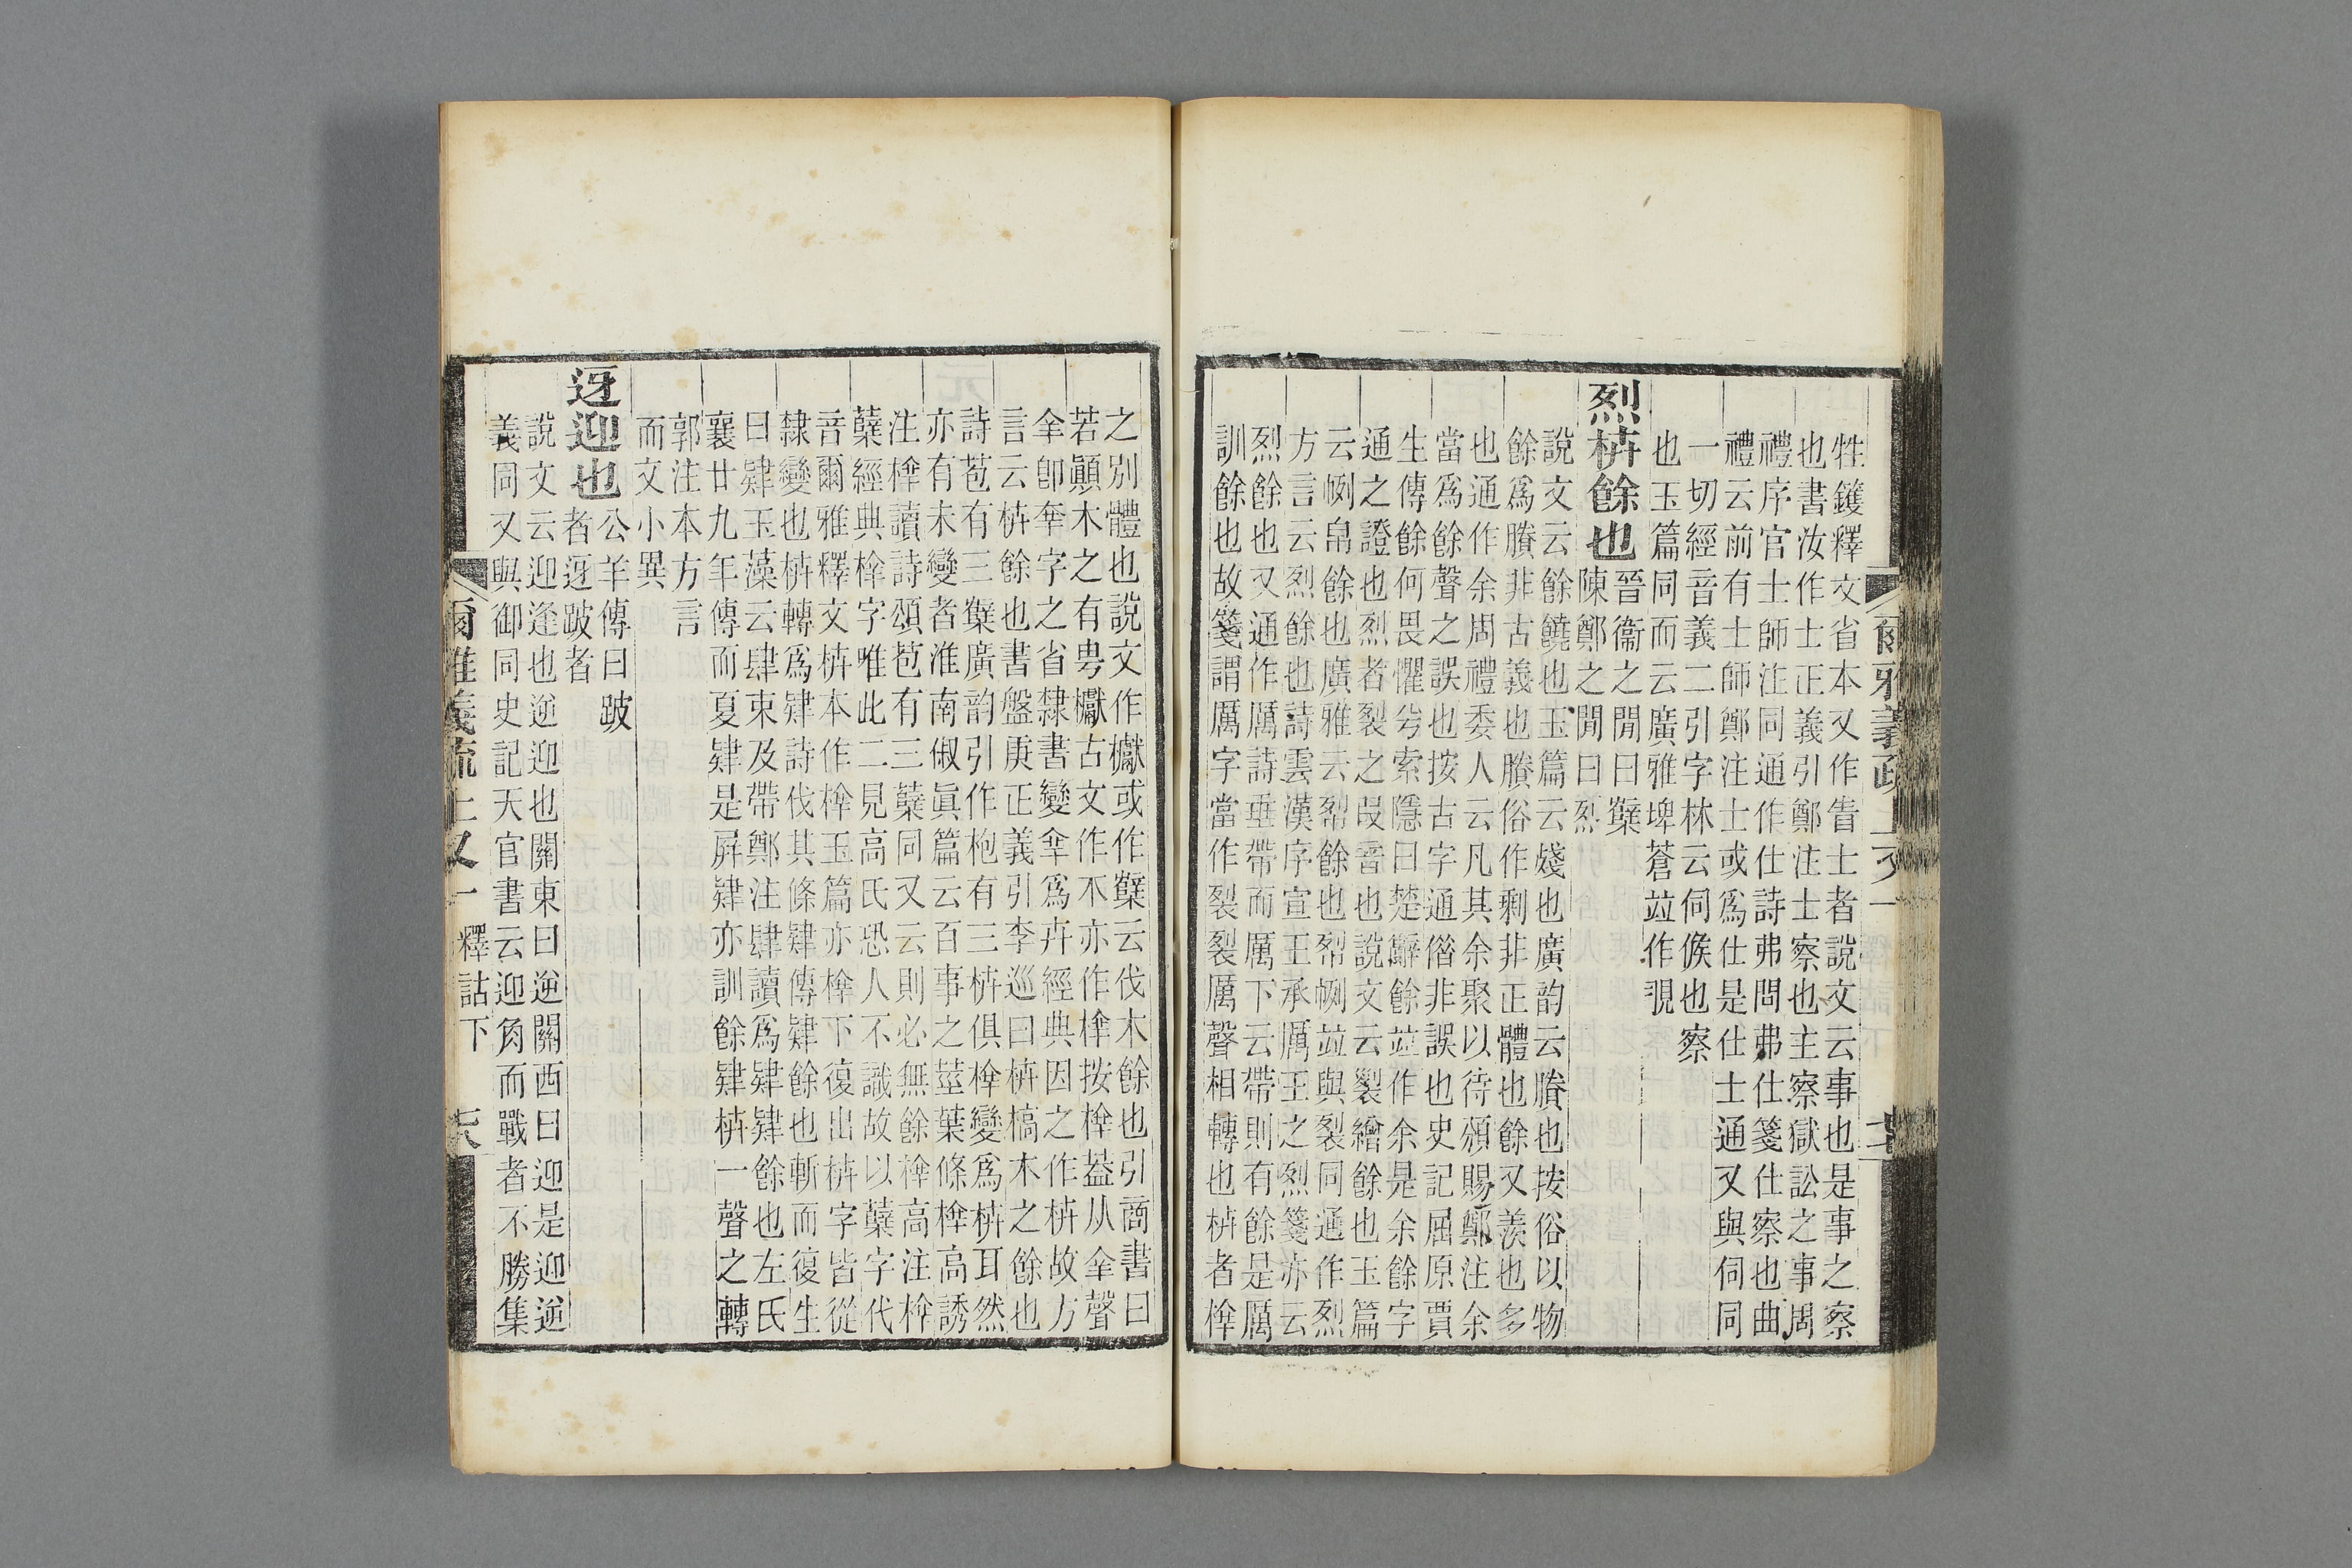 牲鑊釋文省本又作眚士者說文云事也是事之察
也書汝作士正義引鄭注士察也主察獄訟之事周
禮序官士師注同通作仕詩弗問弗仕箋仕察也曲
禮云前有士師鄭注士或爲仕是仕士通又與伺同
一切經音義二引字林云伺候也察
也玉篇同而云廣雅埤蒼竝作覗
烈枿餘也
晉衞之閒曰櫱
陳鄭之閒曰烈
說文云餘饒也玉篇云殘也廣韵云賸也按俗以物
餘爲賸非古義也賸俗作剩非正體也餘又羨也多
也通作余周禮委人云凡其余聚以待頒賜鄭注余
當爲餘聲之誤也按古字通偕非誤也史記屈原賈
生傳餘何畏懼兮索隱曰楚辭餘竝作余是余餘字
通之證也烈者裂之叚音也說文云裂繒餘也玉篇
云㡂帛餘也廣雅云㡂餘也㡂竝與裂同通作烈
方言云烈餘也詩雲漢序宣王承厲王之烈箋亦云
烈餘也又通作厲詩垂帶而厲下云帶則有餘是厲
訓餘也故箋謂厲字當作裂裂厲聲相轉也枿者㭐
之別體也說文作㰆或作櫱云伐木餘也引商書曰
若顚木之有甹㰆古文作不亦作㭐按㭐葢从㚔聲
㚔卽㚔字之省隸書變㚔爲卉經典因之作枿故方
言云枿餘也書盤庚正義引李巡曰枿槁木之餘也
詩苞有三櫱廣韵引作枹有三枿俱㭐變爲枿耳然
亦有未變者淮南俶眞篇云百事之莖葉條㭐高誘
注㭐讀詩頌苞有三櫱同又云則必無餘㭐高注㭐
櫱經典㭐字唯此二見高氏恐人不識故以櫱字代
音爾雅釋文枿本作㭐玉篇亦㭐下復出枿字皆從
隸變也枿轉爲肄詩伐其條肄傳肄餘也斬而復生
曰肄玉藻云肆束及帶鄭注肆讀爲肄肄餘也左氏
襄廿九年傳而夏肄是屛肄亦訓餘肄枿一聲之轉
郭注本方言
而文小異
迓迎也
公羊傳曰跛
者迓跛者
說文云迎逢也逆迎也關東曰逆關西曰迎是迎逆
義同又與御同史記天官書云迎角而戰者不勝集
爾雅義疏 上又一 釋詁下